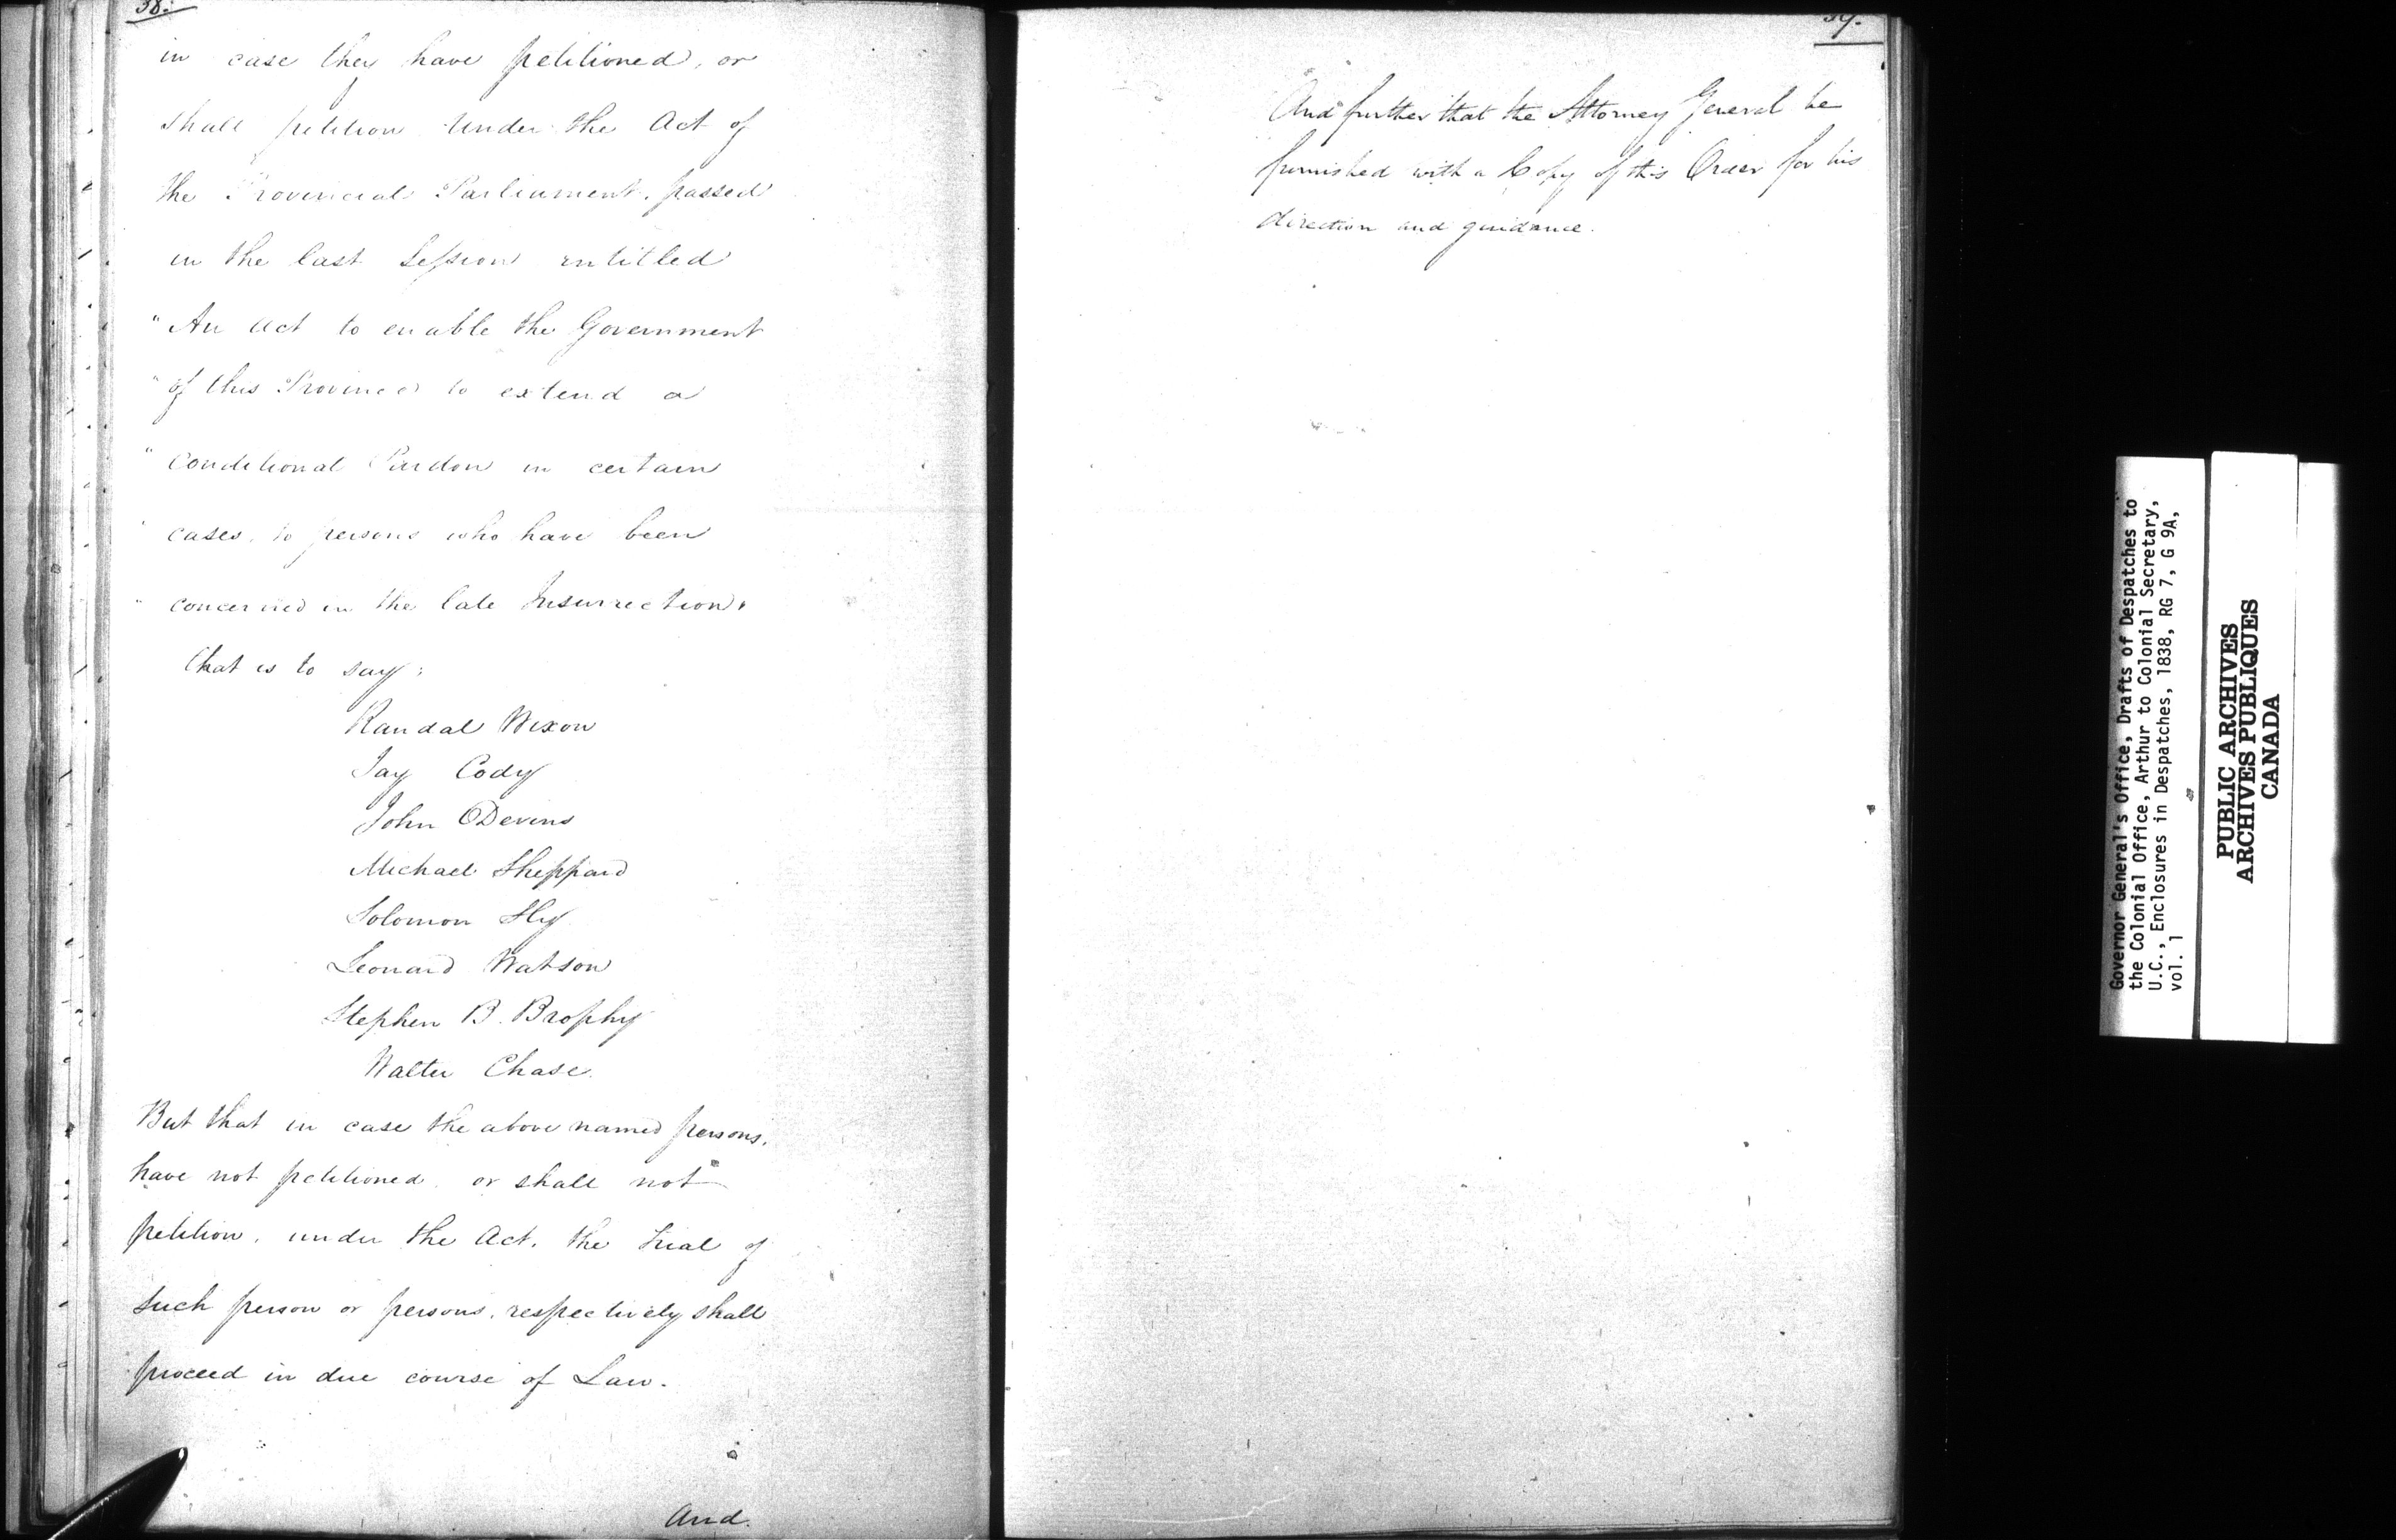 38.
in case they have petitioned, or
shall petition under the Act of
the Provincial Parliament, passed
in the last Session entitled
"An Act to enable the Government
"of this Province to extend a
"Conditional Pardon in certain
"cases, to persons who have been
"concerned in the late Insurrection,
that is to say:
Randal Wixon
Jay Cody
John Devins
Michael Sheppard
Solomon Sly
Leonard Watson
Stephen B. Brophy
Walter Chase.
But that in case the above named persons,
have not petitioned, or shall not
petition, under the Act, the trial of
such person or persons, respectively shall
proceed in due course of Law.
And.
39.
And further that the Attorney General be
furnished with a Copy of this Order for his
direction and guidance.
Governor General's Office, Drafts of Despatches to
the Colonial Office, Arthur to Colonial Secretary,
U.C., Enclosures in Despatches, 1838, RG 7, G 9A,
vol. 1
PUBLIC ARCHIVES
ARCHIVES PUBLIQUES
CANADA